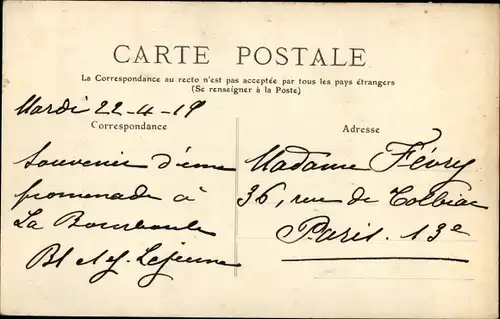 CARTE POSTALE
La Correspondance au recto n'est pas acceptée par tous les pays étrangers
(Se renseigner à la Poste)
Mardi 22-4-19
Correspondance
Souvenir d'une
promenade à
La Bourboule
Bl et J. Lejeune
Adresse
Madame Févry
36, rue de Tolbiac
Paris. 13e